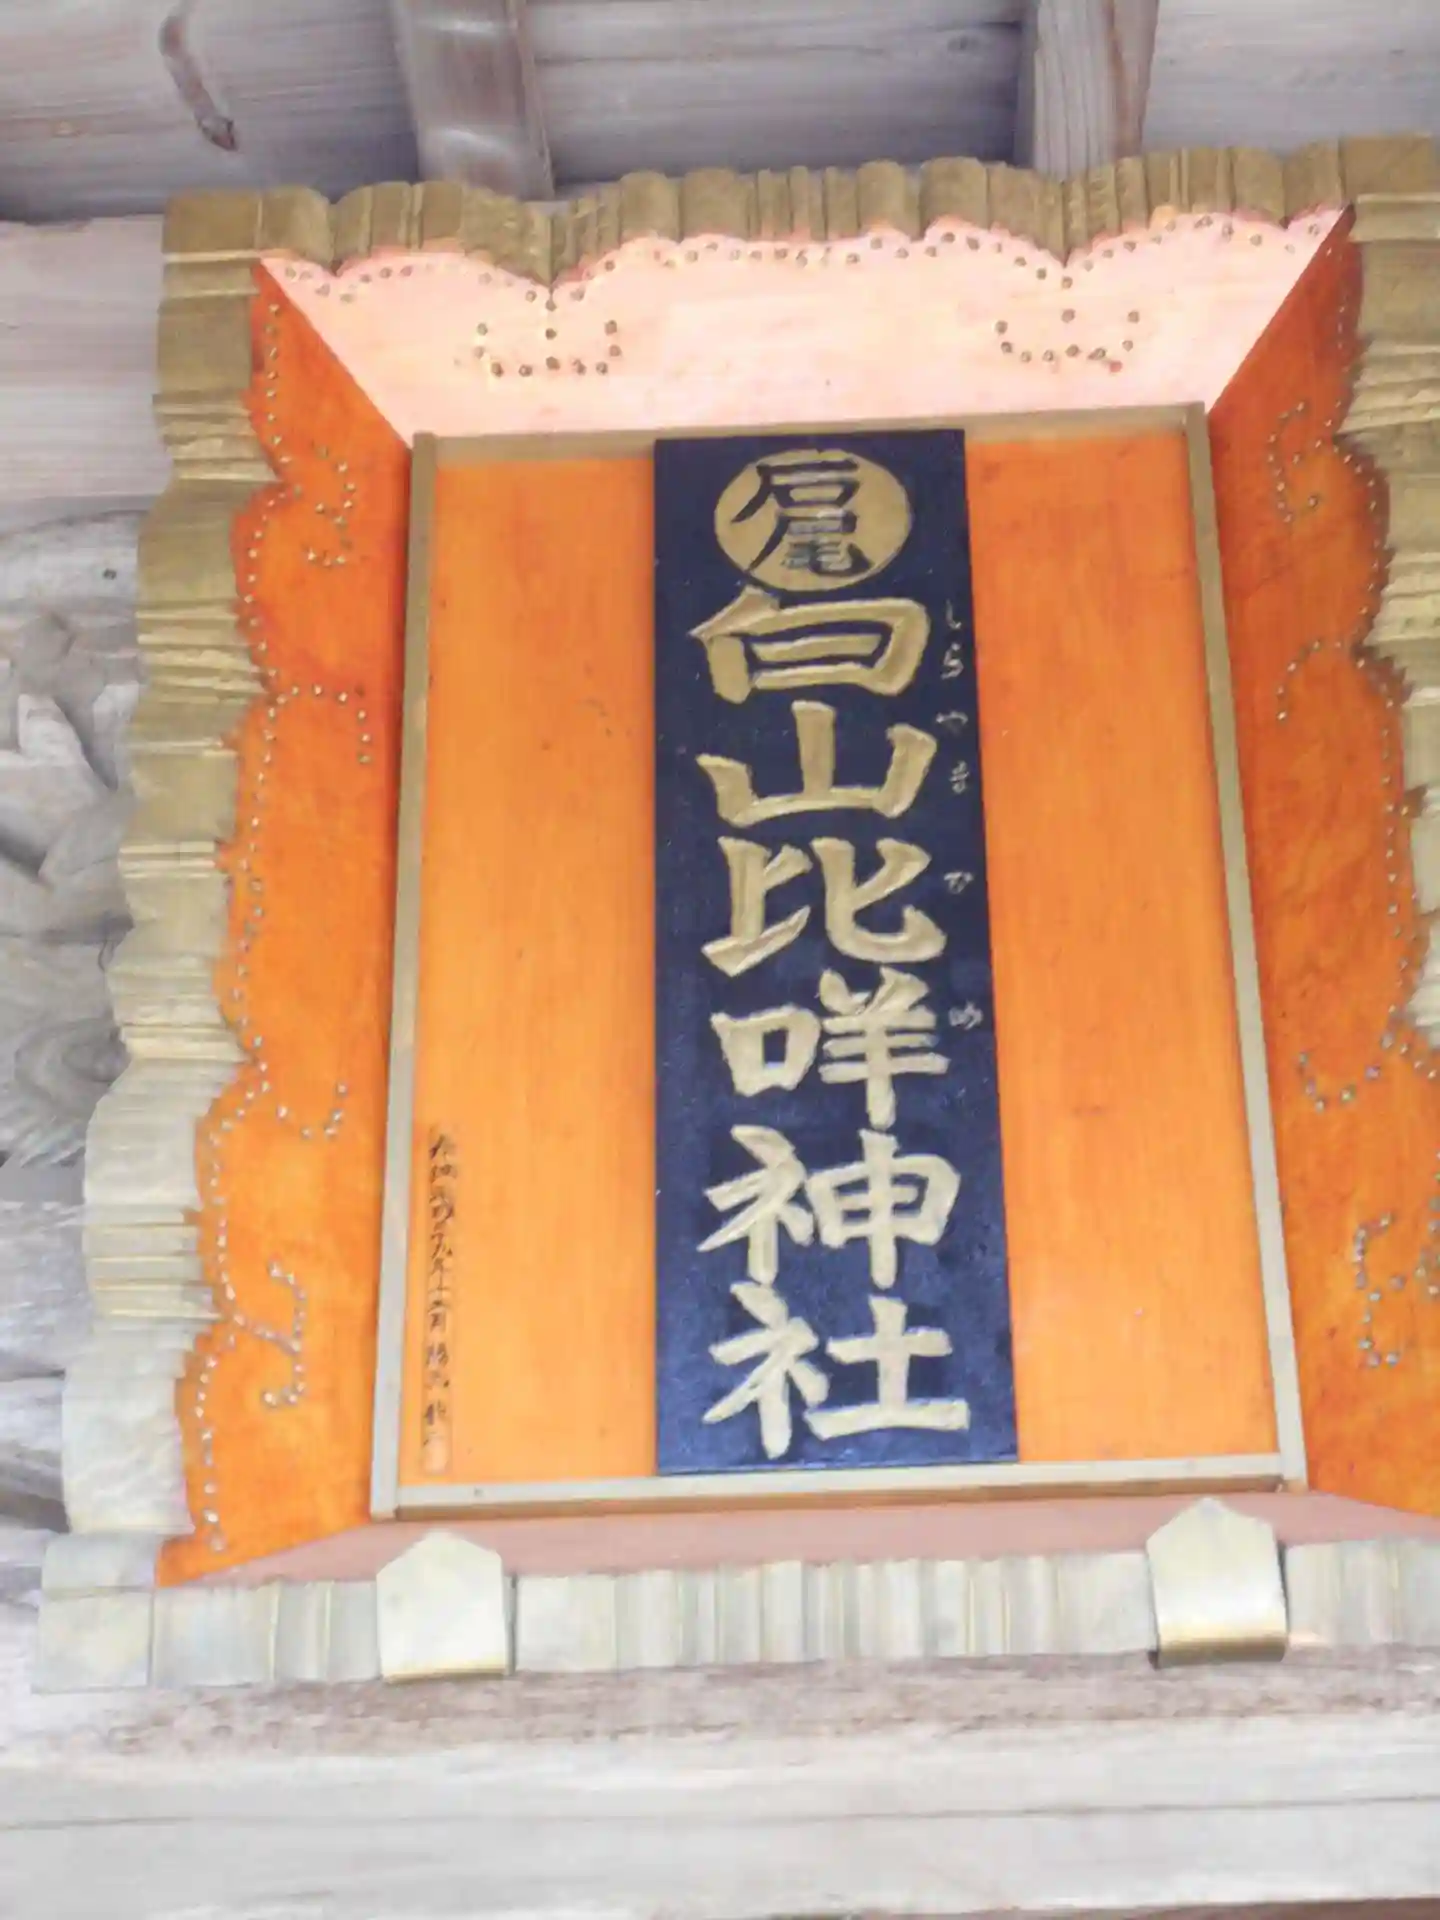 石尾
白山比咩神社
しらやまひめ